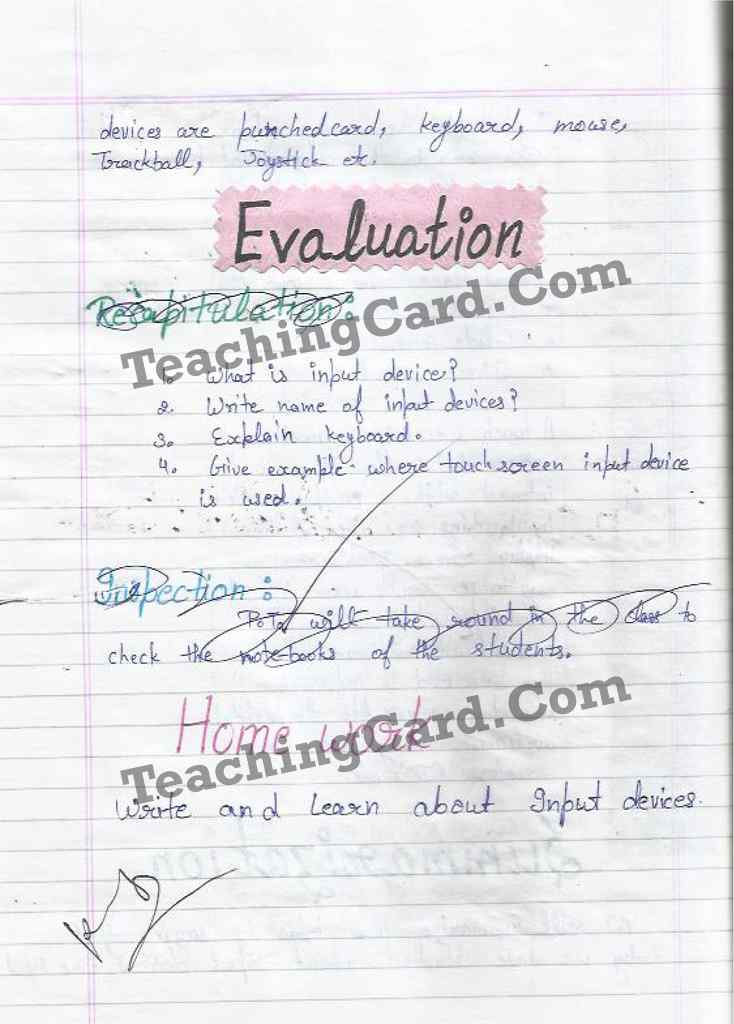 devices are punchedcard, keyboard, mouse,
Trackball, Joystick etc.
Evaluation
Recapitulation :
TeachingCard.Com
1. What is input device?
2. Write name of input devices?
3. Explain keyboard.
4. Give example where touch screen input device
is used.
Inspection :
P.T. will take round in the class to
check the note-books of the students.
Home work
TeachingCard.Com
Write and Learn about Input devices.